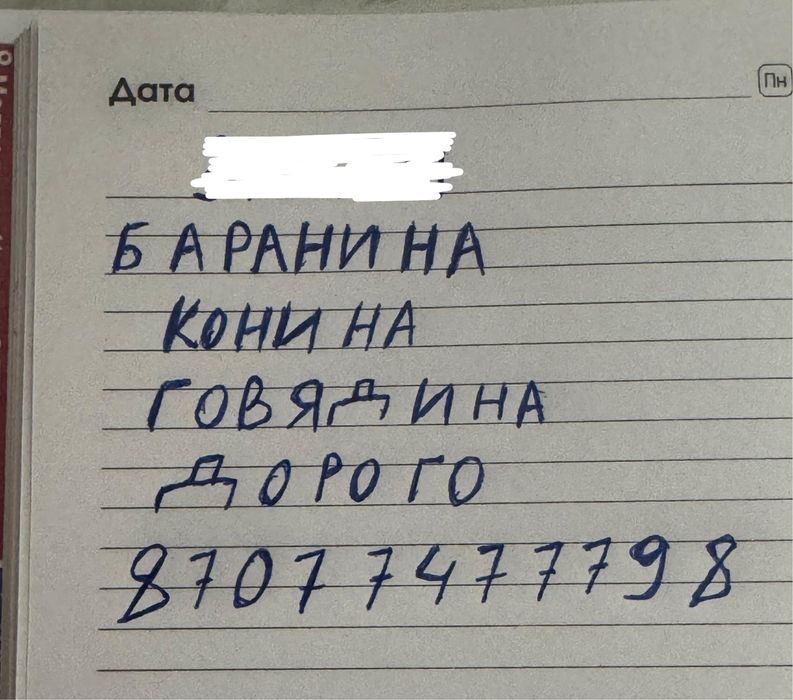 Дата
Пн
БАРАНИНА
КОНИНА
ГОВЯДИНА
ДОРОГО
87077477798